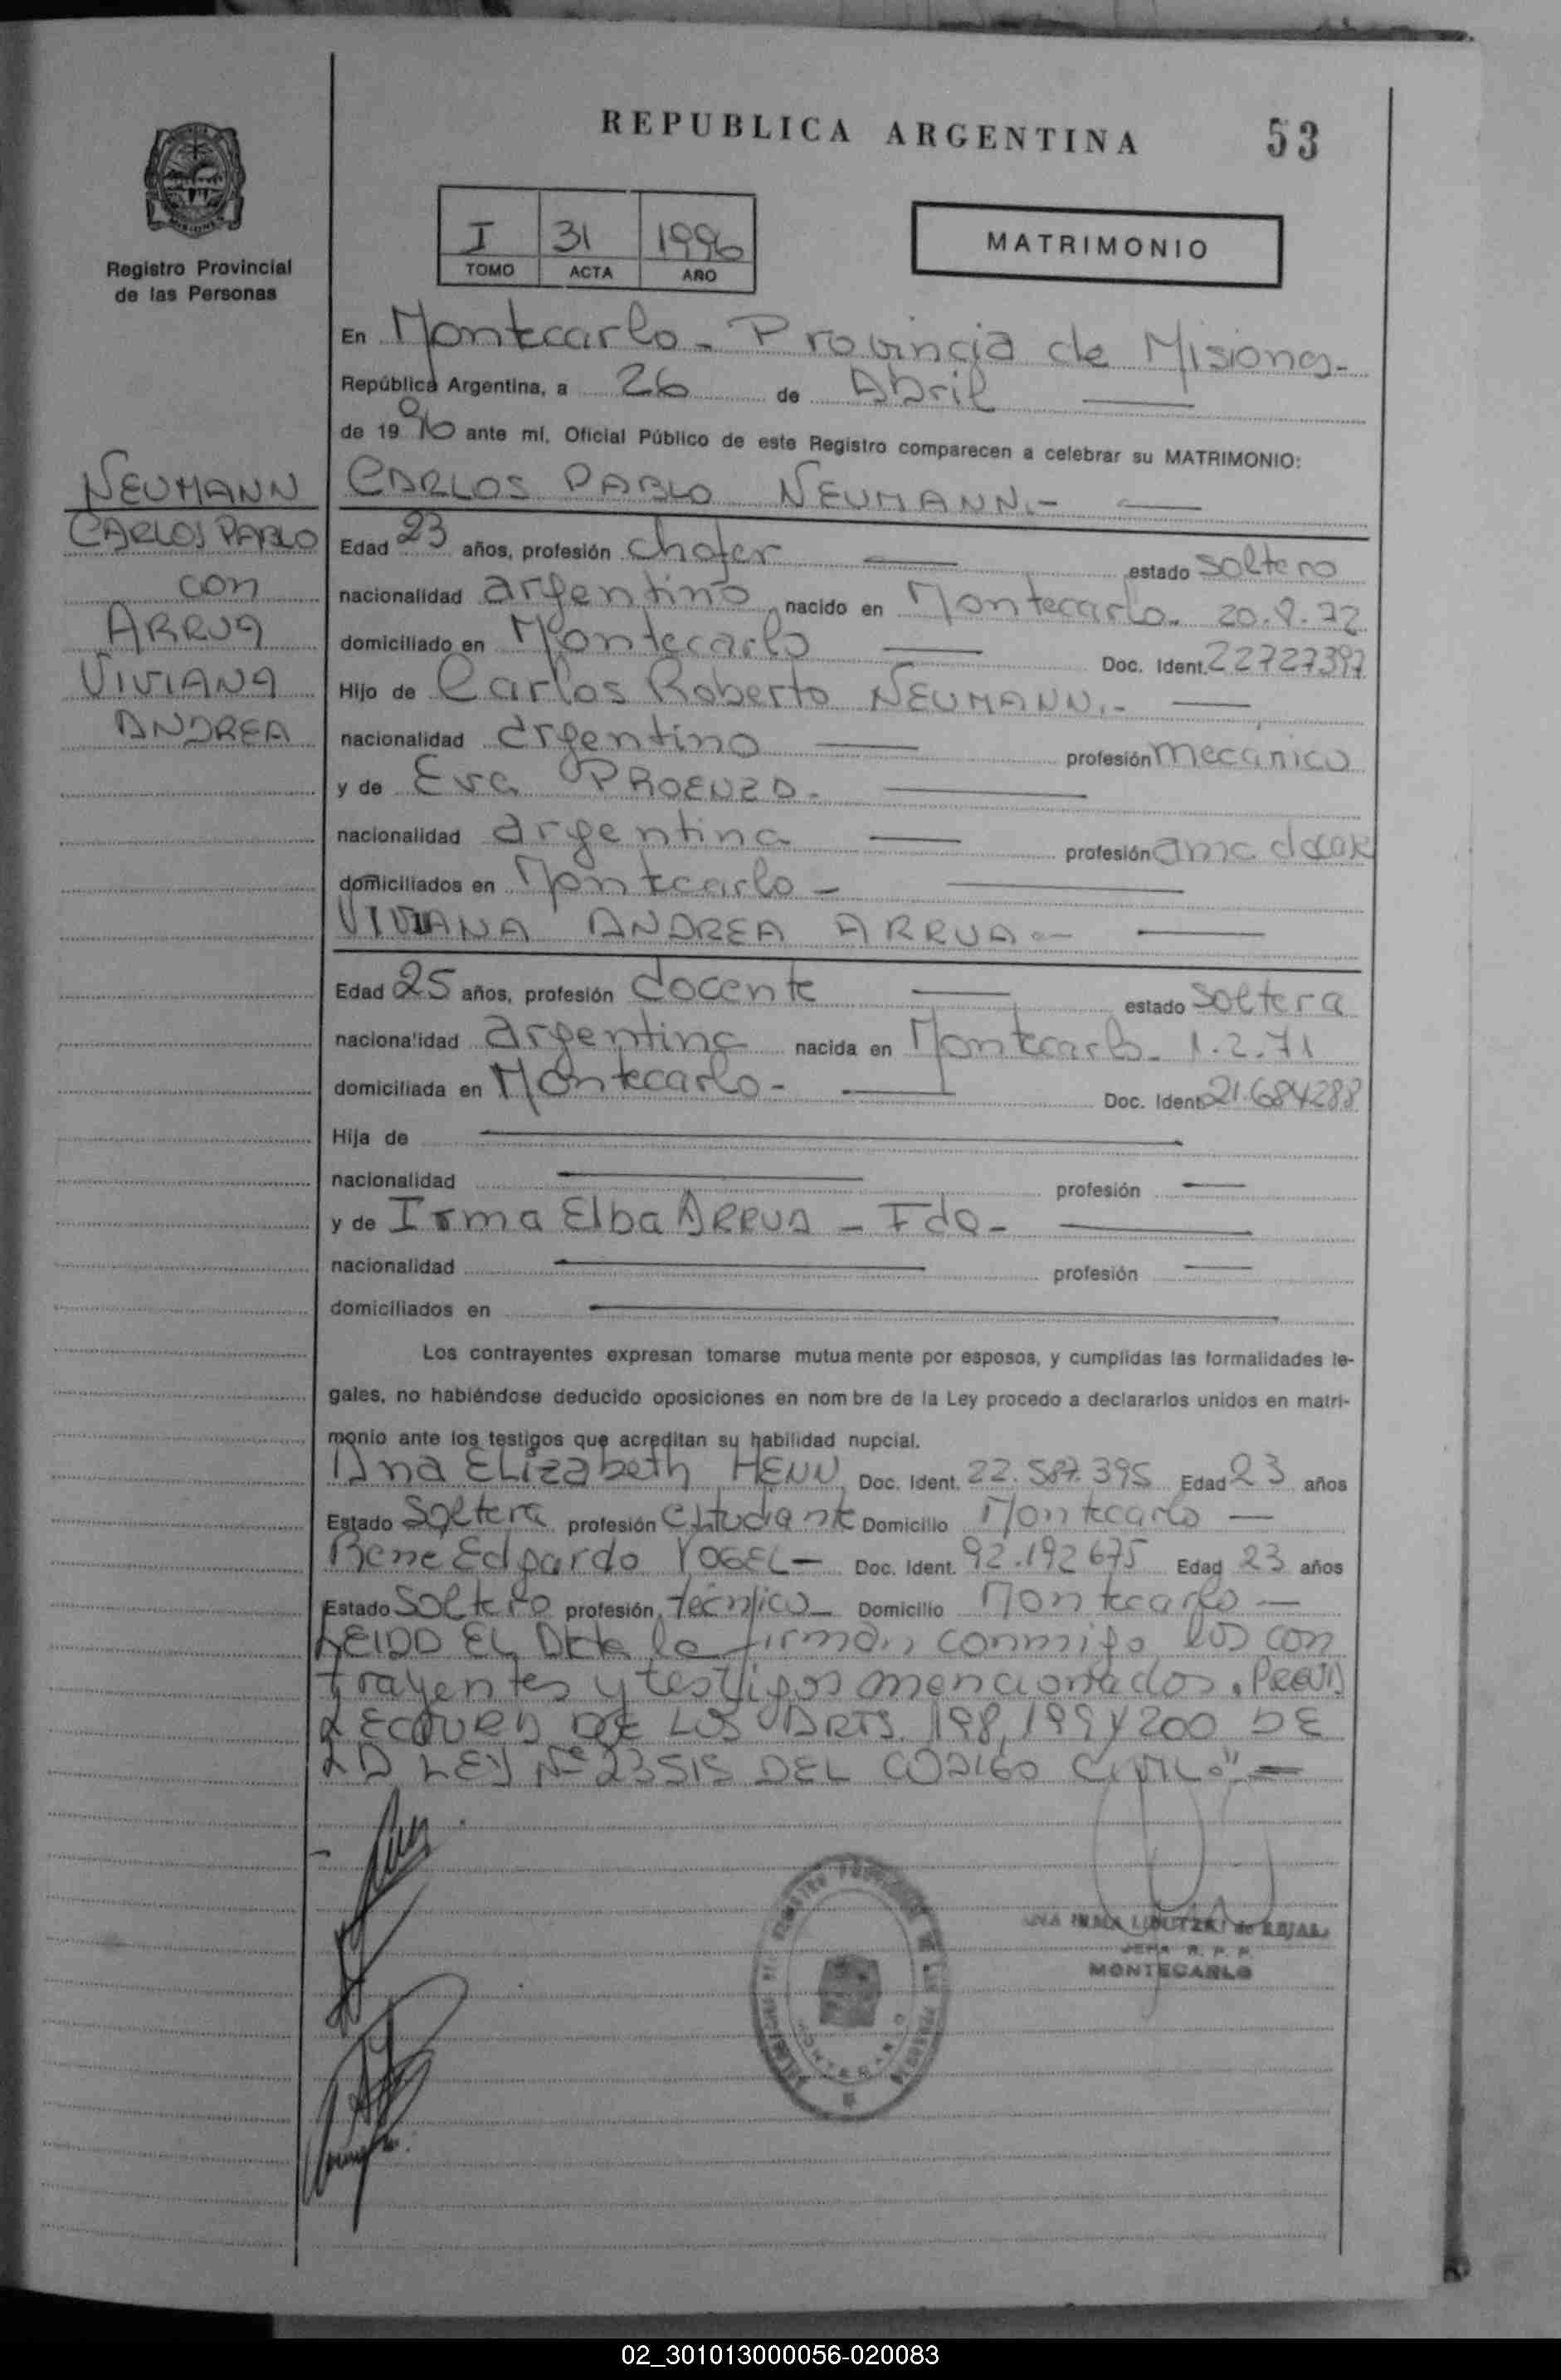 REPUBLICA ARGENTINA
53
I 31 1996
TOMO ACTA AÑO
MATRIMONIO
Registro Provincial
de las Personas
En Montecarlo - Provincia de Misiones-
República Argentina, a 26 de Abril
de 1996 ante mí, Oficial Público de este Registro comparecen a celebrar su MATRIMONIO:
NEUMANN
CARLOS PABLO
con
ARRUA
VIVIANA
ANDREA
CARLOS PABLO NEUMANN.-
Edad 23 años, profesión chofer estado soltero
nacionalidad argentino nacido en Montecarlo- 20.9.72
domiciliado en Montecarlo Doc. Ident. 22727397
Hijo de Carlos Roberto NEUMANN.-
nacionalidad argentino profesión mecánico
y de Eva PROENZA-
nacionalidad argentina profesión ama
domiciliados en Montecarlo-
VIVIANA ANDREA ARRUA-
Edad 25 años, profesión docente estado soltera
nacionalidad argentina nacida en Montecarlo- 1.2.71
domiciliada en Montecarlo- Doc. Ident. 21.684288
Hija de
nacionalidad profesión
y de Irma Elba ARRUA -
nacionalidad profesión
domiciliados en
Los contrayentes expresan tomarse mutua mente por esposos, y cumplidas las formalidades le-
gales, no habiéndose deducido oposiciones en nom bre de la Ley procedo a declararlos unidos en matri-
monio ante los testigos que acreditan su habilidad nupcial.
Ana Elizabeth HENN Doc. Ident. 22.587.395 Edad 23 años
Estado soltera profesión estudiante Domicilio Montecarlo-
Rene Edgardo VOGEL- Doc. Ident. 92.192675 Edad 23 años
Estado soltero profesión técnico- Domicilio Montecarlo-
LEIDO EL Acta la firman conmigo los con
trayentes y testigos mencionados. PREVIA
LECTURA DE LOS ARTS. 198, 199 Y 200 DE
LA LEY Nº 23515 DEL CODIGO CIVIL."-
JEFA R. P. P.
MONTECARLO
02_301013000056-020083